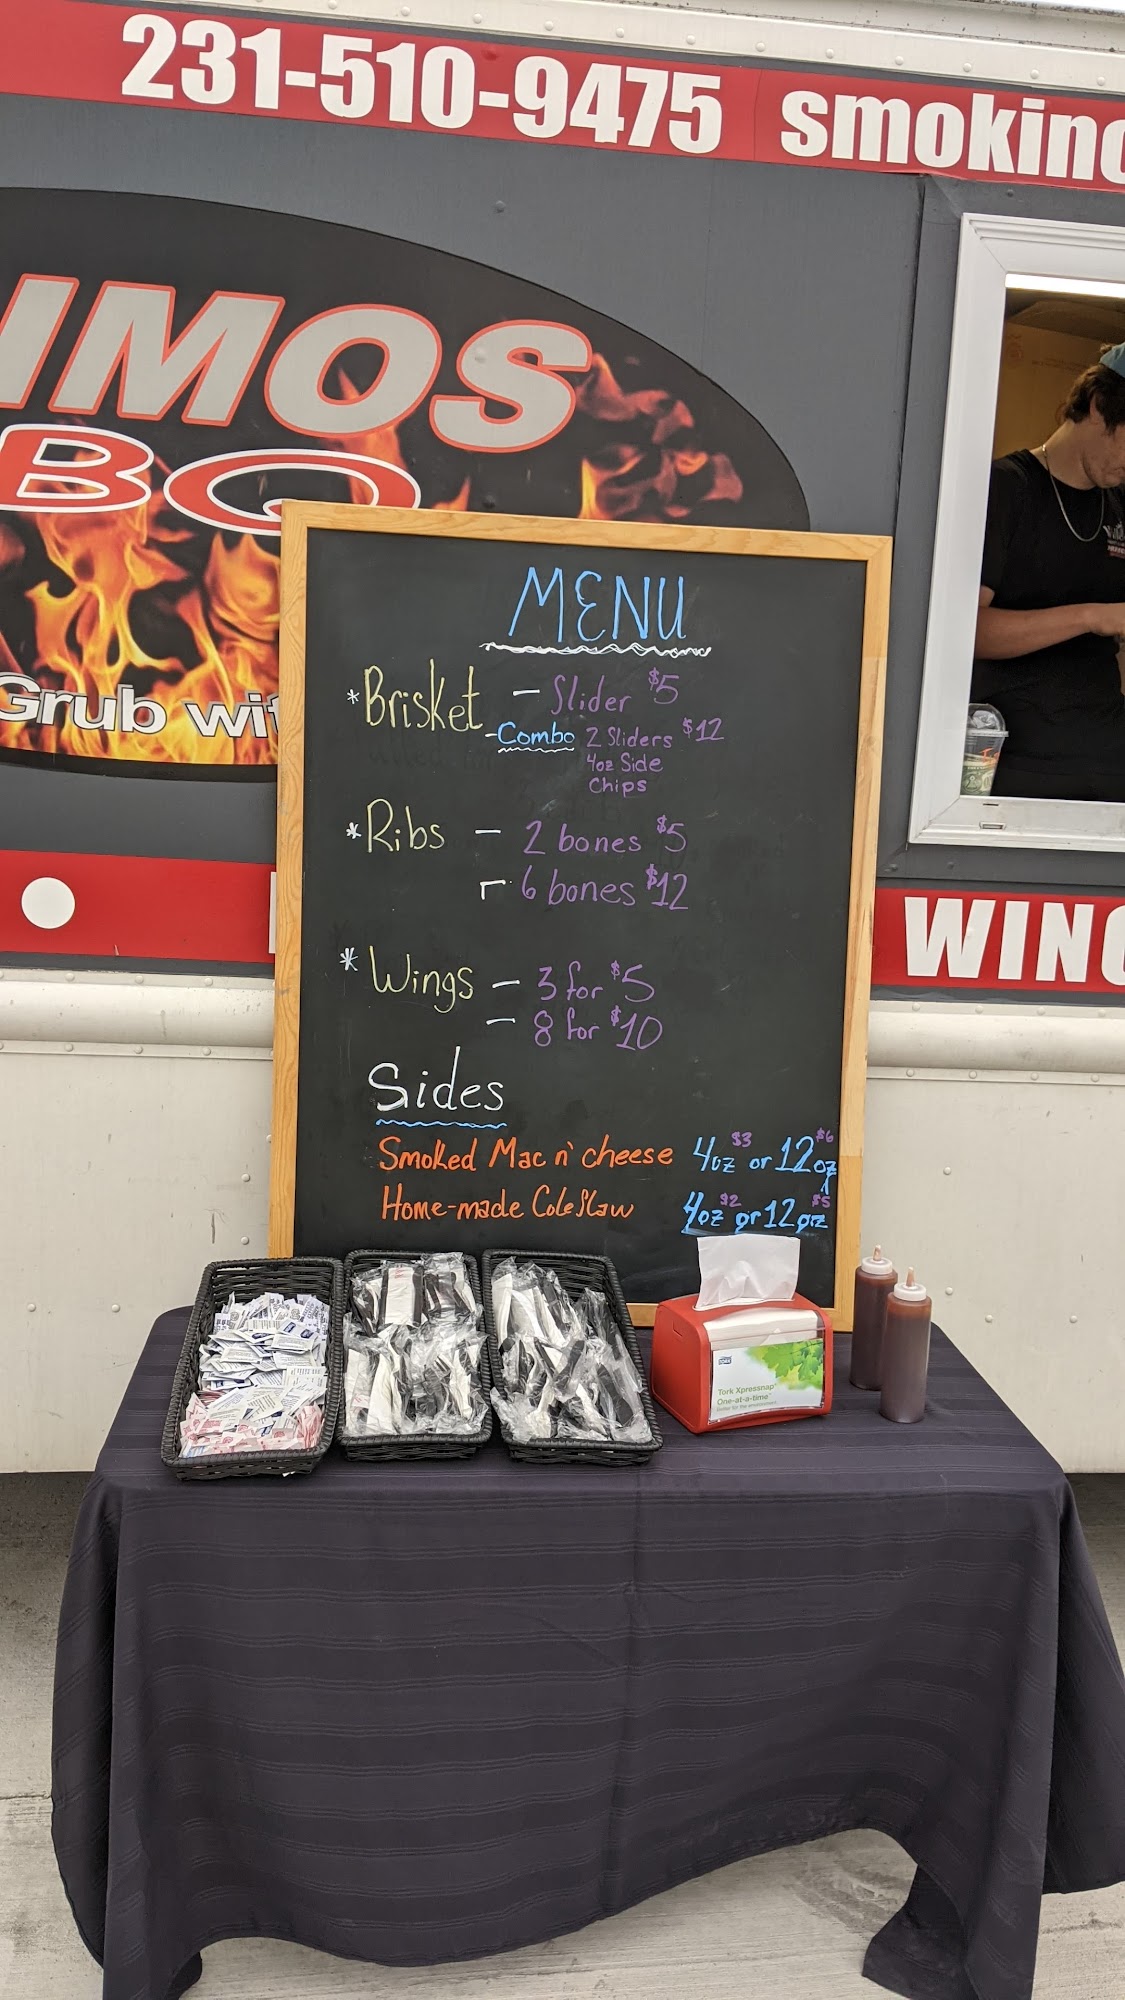 231-510-9475 smoking
IMOS
BQ
Grub wit
MENU
*Brisket - Slider $5
-Combo 2 Sliders $12
4oz Side
Chips
*Ribs - 2 bones $5
- 6 bones $12
WING
* Wings - 3 for $5
- 8 for $10
Sides
Smoked Mac n' cheese 4oz $3 or 12oz $6
Home-made Coleslaw 4oz $2 or 12oz $5
Tork Xpressnap®
One-at-a-time™